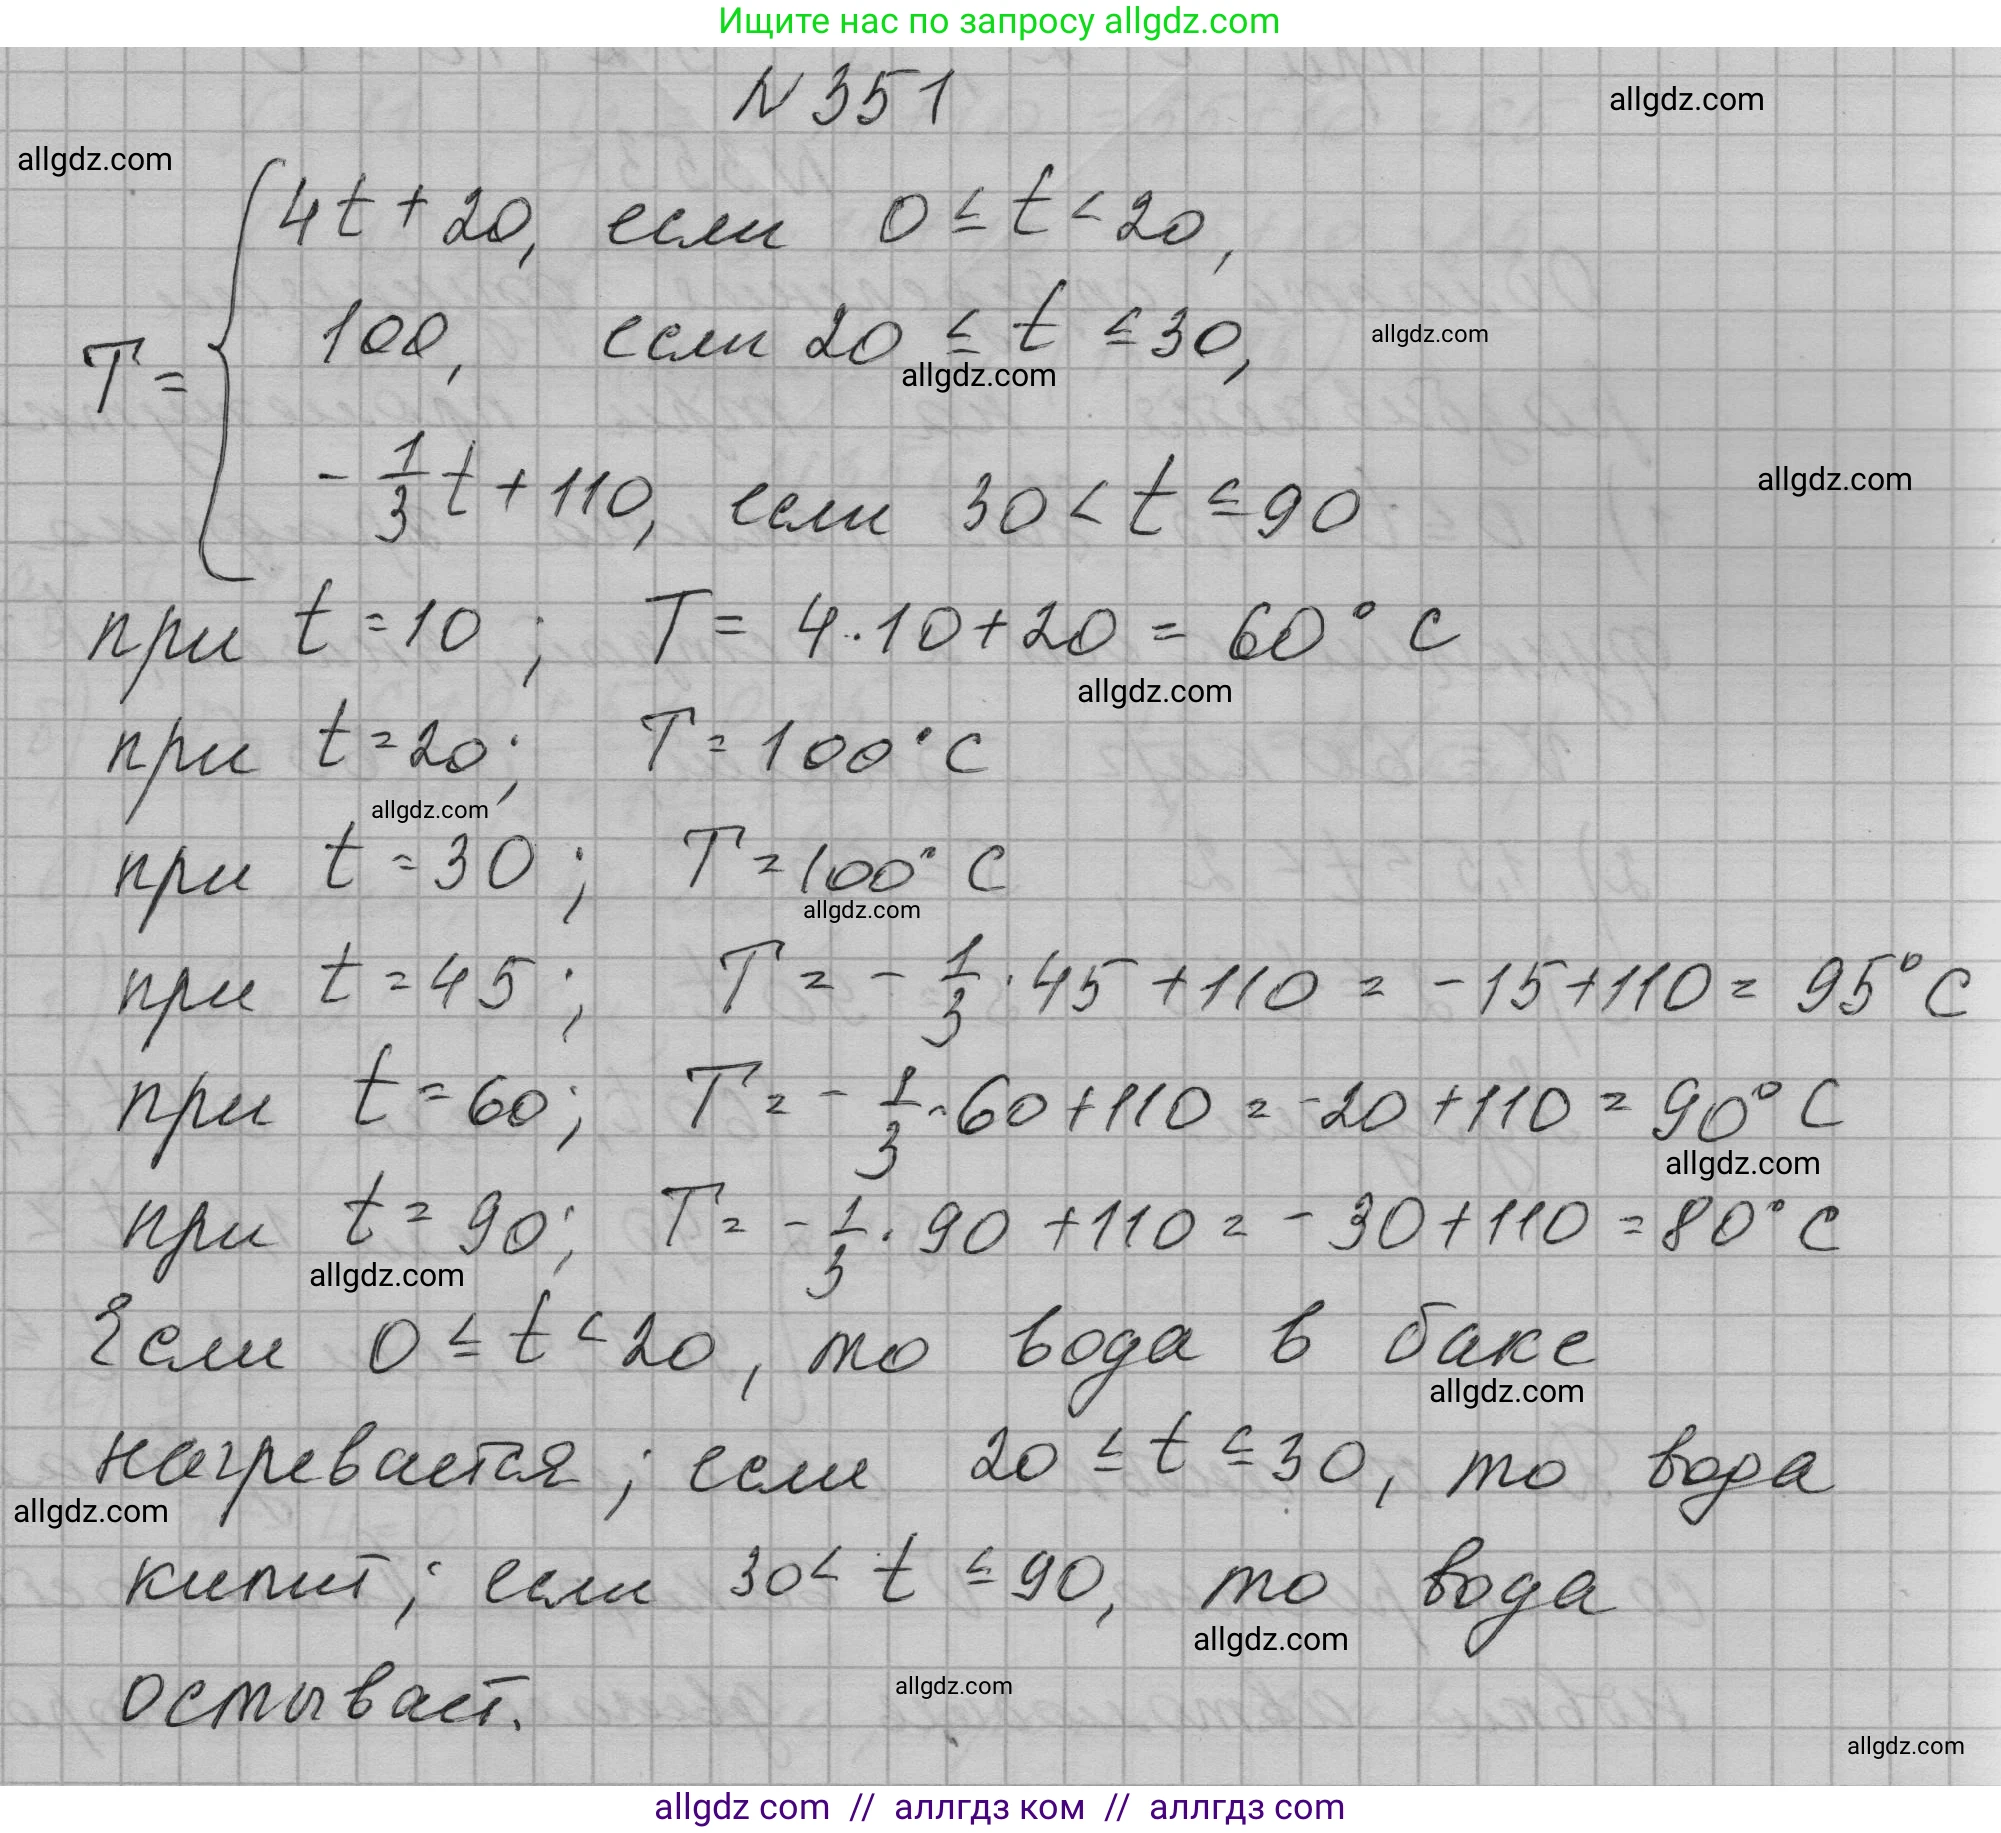 Ищите нас по запросу allgdz.com
N 351
allgdz.com
allgdz.com
T = { 4t + 20, если 0 ≤ t < 20,
100, если 20 ≤ t ≤ 30,
allgdz.com
allgdz.com
- 1/3 t + 110, если 30 < t ≤ 90
allgdz.com
при t = 10; T = 4 · 10 + 20 = 60° C
allgdz.com
при t = 20; T = 100° C
allgdz.com
при t = 30; T = 100° C
allgdz.com
при t = 45; T = - 1/3 · 45 + 110 = - 15 + 110 = 95° C
при t = 60; T = - 1/3 · 60 + 110 = - 20 + 110 = 90° C
allgdz.com
при t = 90; T = - 1/3 · 90 + 110 = - 30 + 110 = 80° C
allgdz.com
Если 0 ≤ t < 20, то вода в баке
allgdz.com
нагревается; если 20 ≤ t ≤ 30, то вода
allgdz.com
кипит; если 30 < t ≤ 90, то вода
allgdz.com
остывает.
allgdz.com
allgdz.com
allgdz com // аллгдз ком // аллгдз com